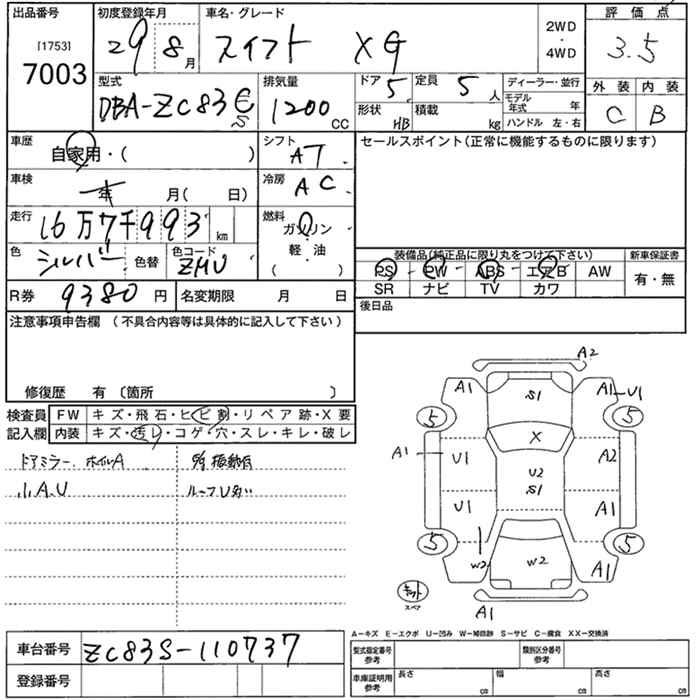 出品番号 初度登録年月 車名・グレード 評価点
[1753]
7003
29 8月 スイフト XG 2WD・4WD 3.5
型式 排気量 ドア 5 定員 5人 ディーラー・並行 外装 内装
DBA-ZC83 1200 CC 形状 HB 積載 kg モデル年式 年 C B
ハンドル 左・右
車歴 自家用・( ) シフト AT セールスポイント(正常に機能するものに限ります)
車検 年 月( 日) 冷房 AC
走行 16万7千993 km 燃料 ガソリン
軽・油
( )
色 シルバー 色替 色コード ZMU
装備品(純正品に限り丸をつけて下さい) 新車保証書
PS PW ABS エアB AW 有・無
SR ナビ TV カワ
R券 9380円 名変期限 月 日 後日品
注意事項申告欄(不具合内容等は具体的に記入して下さい)
修復歴 有〔箇所 〕
検査員 FW キズ・飛石・ヒビ割・リペア跡・X要
記入欄 内装 キズ・汚レ・コゲ・穴・スレ・キレ・破レ
ドアミラー、ホイルA
小A.U ルーフU
A2
A1 S1 A1 U1
5 5
X
A1 U1 U2 A2
S1
U1 A1
5 5
W2 W2 A1
スペア
A1
A-キズ E-エクボ U-凹み W-補修跡 S-サビ C-腐食 XX-交換済
車台番号 ZC83S-110737
登録番号
型式指定番号 参考 類別区分番号 参考
車庫証明用 参考 長さ cm 幅 cm 高さ cm